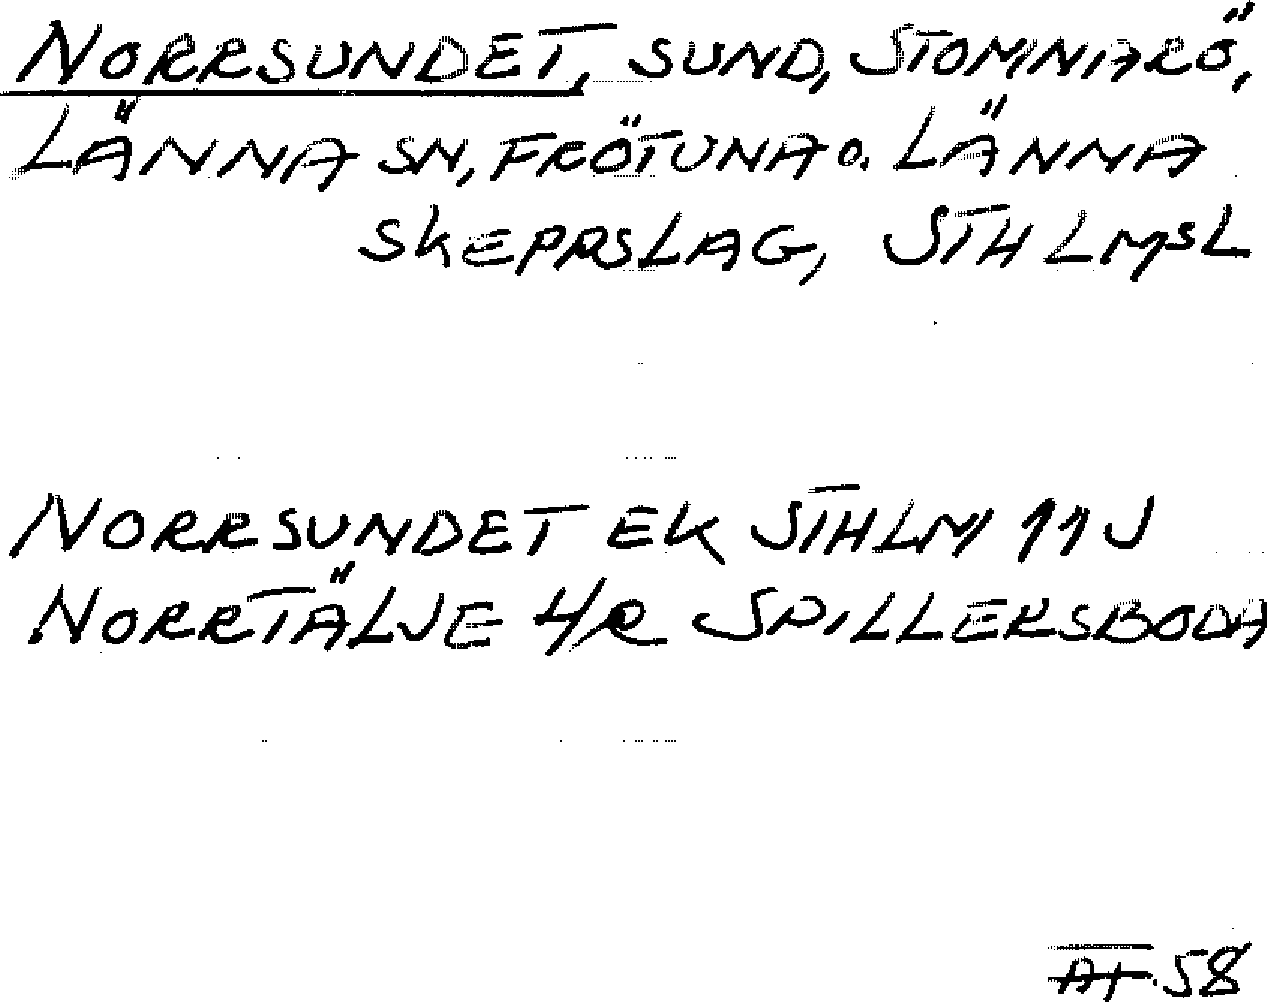 NORRSUNDET, SUND, STOMNARÖ,
LÄNNA SN, FRÖTUNA O. LÄNNA
SKEPPSLAG, STHLMSL
NORRSUNDET EK STHLM 11J
NORRTÄLJE 4/R SPILLERSBODA
58